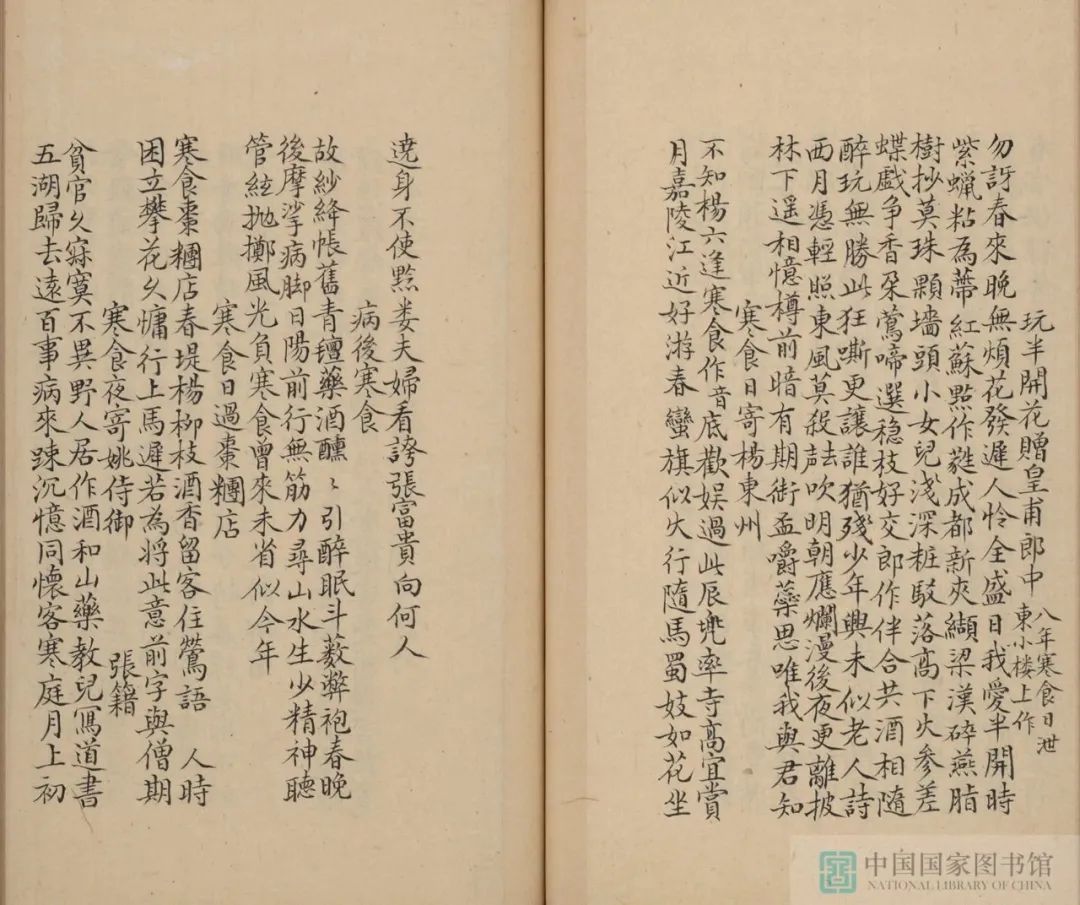 玩半開花贈皇甫郎中 八年寒食日泄
東小楼上作
勿訝春來晚無煩花發遲人怜全盛日我愛半開時
紫蠟粘為蔕紅蘇點作蕤成都新夾纈梁漢碎燕脂
樹抄莫珠顆墻頭小女兒淺深粧駁落高下火參差
蝶戲争香朶鶯啼選穏枝好交郎作伴合共酒相隨
醉玩無勝此狂嘶更讓誰猶殘少年興未似老人詩
西月憑輕照東風莫殺去声吹明朝應爛漫後夜更離披
林下遥相憶樽前暗有期銜盃嚼蘂思唯我與君知
寒食日寄楊東州
不知楊六逢寒食作音底歡娯過此辰兜率寺高宜賞
月嘉陵江近好游春蠻旗似火行隨馬蜀妓如花坐
遶身不使黔婁夫婦看誇張富貴向何人
病後寒食
故紗絳帳舊青氊藥酒醺〻引醉眠斗薮弊袍春晚
後摩挲病脚日陽前行無筋力尋山水生少精神聽
管絃抛擲風光負寒食曾來未省似今年
寒食日過棗糰店
寒食棗糰店春堤楊柳枝酒香留客住鶯語 人時
困立攀花久慵行上馬遲若為將此意前字與僧期
寒食夜寄姚侍御 張籍
貧官久寂寞不異野人居作酒和山藥教兒寫道書
五湖歸去遠百事病來踈沉憶同懷客寒庭月上初
中国国家图书馆
NATIONAL LIBRARY OF CHINA